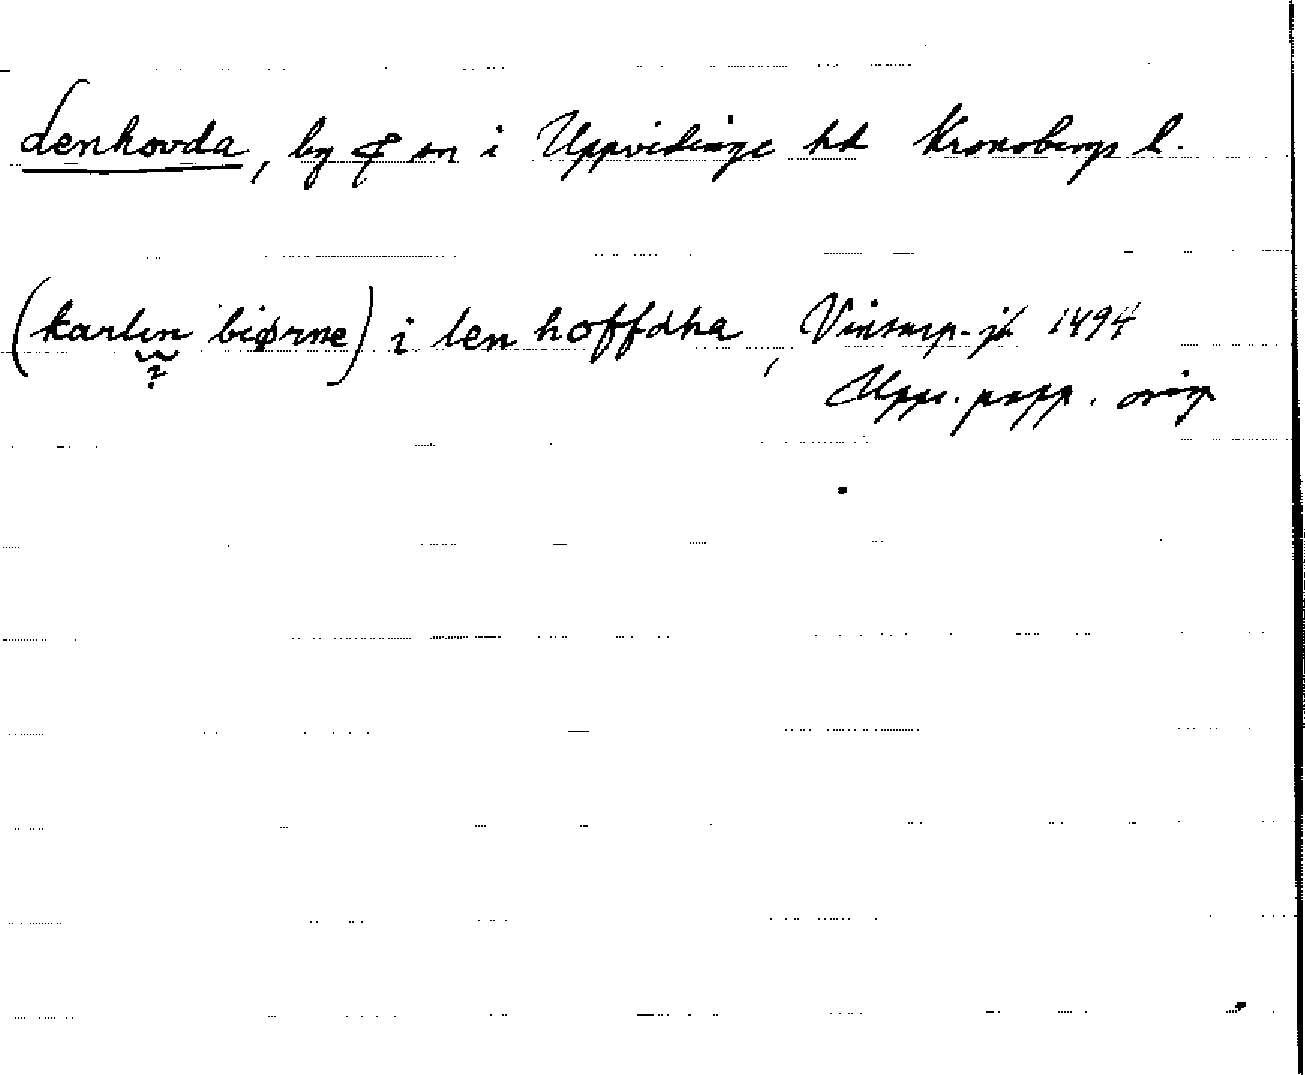 Lenhovda, by o sn i Uppvidinge hd Kronobergs l.
(karlin biørne) i len hoffdha, Vinstorp-jb 1494
?
Upps. papp. orig